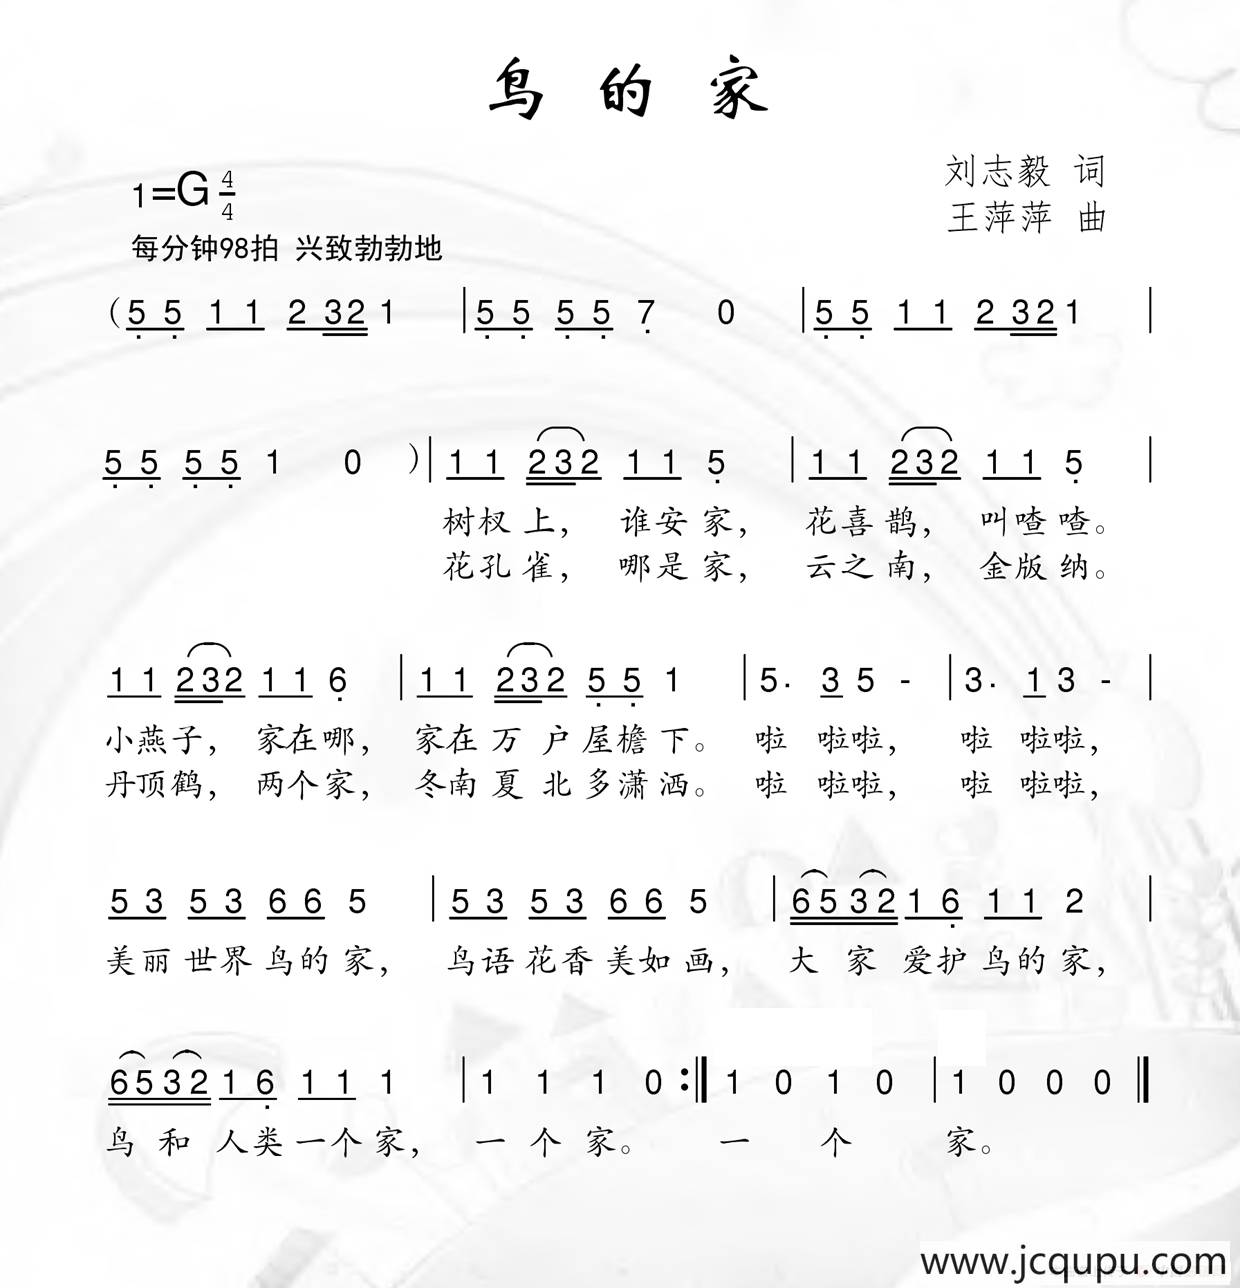 鸟的家
刘志毅 词
1=G 4/4
王萍萍 曲
每分钟98拍 兴致勃勃地
(5 5 1 1 2 3 2 1 | 5 5 5 5 7 0 | 5 5 1 1 2 3 2 1 |
5 5 5 5 1 0 ) | 1 1 2 3 2 1 1 5 | 1 1 2 3 2 1 1 5 |
树杈上， 谁安家， 花喜鹊， 叫喳喳。
花孔雀， 哪是家， 云之南， 金版纳。
1 1 2 3 2 1 1 6 | 1 1 2 3 2 5 5 1 | 5. 3 5 - | 3. 1 3 - |
小燕子， 家在哪， 家在万户屋檐下。 啦 啦啦， 啦 啦啦，
丹顶鹤， 两个家， 冬南夏北多潇洒。 啦 啦啦， 啦 啦啦，
5 3 5 3 6 6 5 | 5 3 5 3 6 6 5 | 6 5 3 2 1 6 1 1 2 |
美丽世界鸟的家， 鸟语花香美如画， 大家爱护鸟的家，
6 5 3 2 1 6 1 1 1 | 1 1 1 0 :|| 1 0 1 0 | 1 0 0 0 ||
鸟和人类一个家， 一个家。 一个家。
www.jcqupu.com